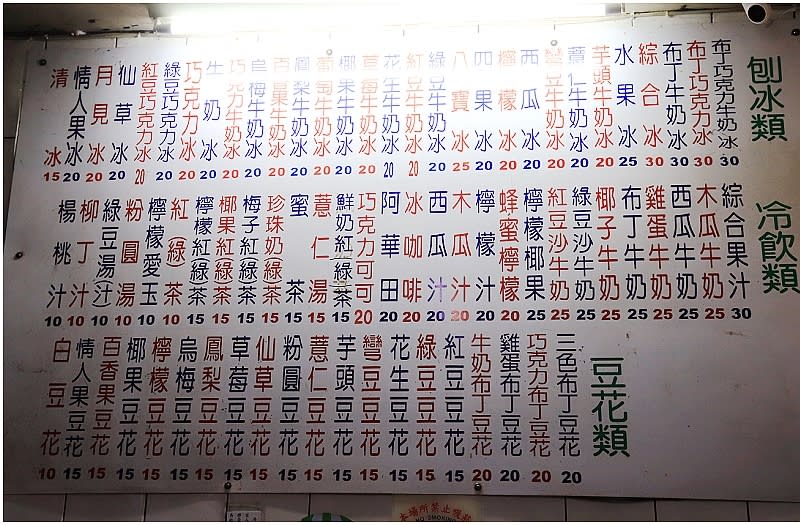 刨冰類
布丁巧克力牛奶冰 30
布丁巧克力冰 30
布丁牛奶冰 30
綜合冰 30
水果冰 25
芋頭牛奶冰 20
薏仁牛奶冰 20
彎豆牛奶冰 20
西瓜冰 20
檸檬冰 20
四果冰 20
八寶冰 25
綠豆牛奶冰 20
紅豆牛奶冰 20
花生牛奶冰 20
草莓牛奶冰 20
椰果牛奶冰 20
葡萄牛奶冰 20
鳳梨牛奶冰 20
百香果牛奶冰 20
烏梅牛奶冰 20
巧克力牛奶冰 20
牛奶冰 20
巧克力冰 20
綠豆巧克力冰 20
紅豆巧克力冰 20
仙草冰 20
月見冰 20
情人果冰 20
清冰 15
冷飲類
綜合果汁 30
木瓜牛奶 25
西瓜牛奶 25
雞蛋牛奶 25
布丁牛奶 25
椰子牛奶 25
綠豆沙牛奶 25
紅豆沙牛奶 25
檸檬椰果 25
蜂蜜檸檬 20
檸檬汁 20
木瓜汁 20
西瓜汁 20
冰咖啡 20
阿華田 20
巧克力可可 20
鮮奶紅(綠)茶 15
薏仁湯 15
蜜茶 15
珍珠奶(綠)茶 15
梅子紅(綠)茶 15
椰果紅(綠)茶 15
檸檬紅(綠)茶 15
紅(綠)茶 10
檸檬愛玉 10
粉圓湯 10
綠豆湯(汁) 10
柳丁汁 10
楊桃汁 10
豆花類
三色布丁豆花 20
巧克力布丁豆花 20
雞蛋布丁豆花 20
牛奶布丁豆花 20
紅豆豆花 15
綠豆豆花 15
花生豆花 15
彎豆豆花 15
芋頭豆花 15
薏仁豆花 15
粉圓豆花 15
仙草豆花 15
草莓豆花 15
鳳梨豆花 15
烏梅豆花 15
檸檬豆花 15
椰果豆花 15
百香果豆花 15
情人果豆花 15
白豆花 10
NO SMOKING